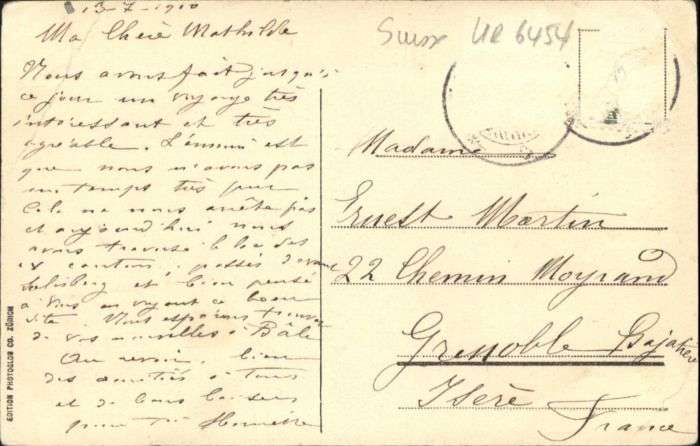 13-7-1910
Ma Chère Mathilde
Nous avons fait jusqu'à
ce jour un voyage très
intéressant et très
agréable. L'ennui est
que nous n'avons pas
un temps très pur
Cela ne nous arrête pas
et aujourd'hui nous
avons traversé le lac des
4 cantons, passés devant
Seelisberg et bien pensé
à vous en voyant ce beau
site. Nous espérons trouver
de vos nouvelles à Bâle
Au revoir, bien
des amitiés à tous
et de bons baisers
pour toi
Suisse UR 6454
Madame
Ernest Martin
22 Chemin Moyrand
Grenoble Bajatière
Isère
France
EDITION PHOTOGLOB CO. ZÜRICH